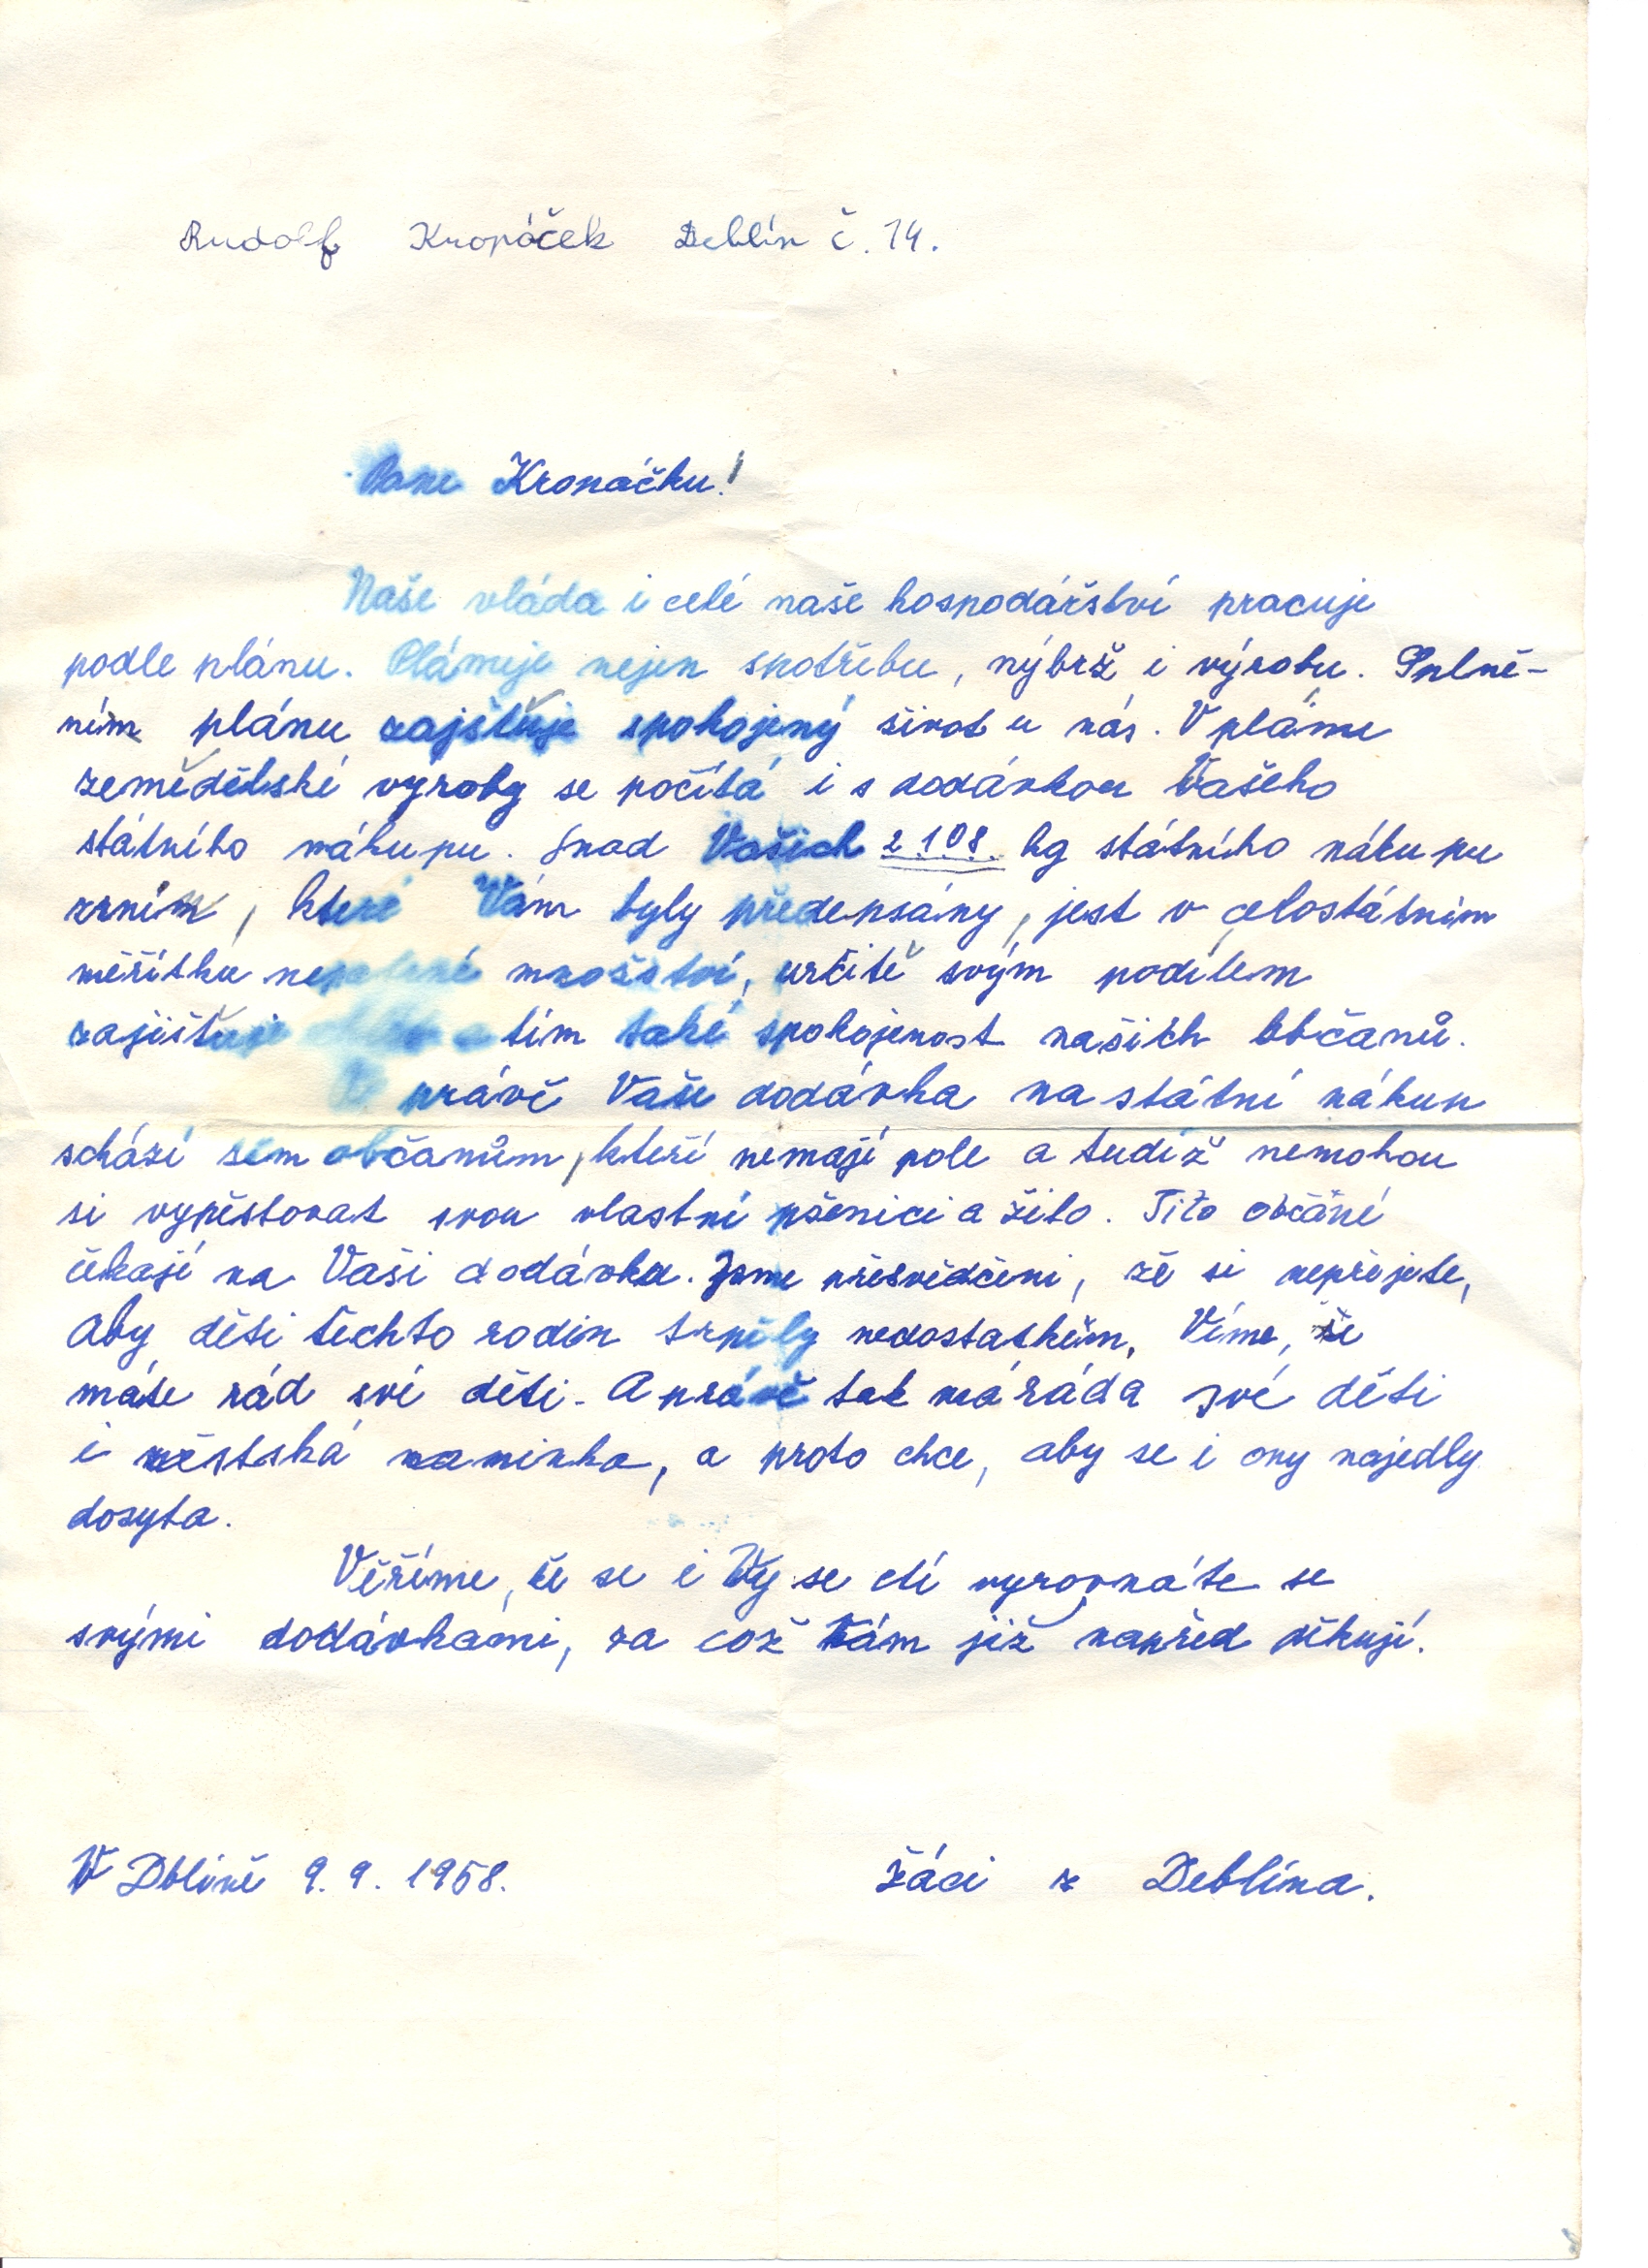 Rudolf Kropáček Deblín č. 14.
Pane Kropáčku!
Naše vláda i celé naše hospodářství pracuje
podle plánu. Plánuje nejen spotřebu, nýbrž i výrobu. Splně-
ním plánu zajišťuje spokojený život u nás. V plánu
zemědělské vyroby se počítá i s dodávkou Vašeho
státního nákupu. Snad Vašich 2108 kg státního nákupu
zrnin, které Vám byly předepsány, jest v celostátním
měřítku nepatrné množství, určitě svým podílem
zajišťuje a tím také spokojenost našich občanů.
právě Vaše dodávka na státní nákup
schází těm občanům, kteří nemají pole a tudíž nemohou
si vypěstovat svou vlastní pšenici a žito. Tito občané
čekají na Vaši dodávku. Jsme přesvědčeni, že si nepřejete,
aby děti těchto rodin trpěly nedostatkem. Víme, že
máte rád své děti. A právě tak má ráda své děti
i městská maminka, a proto chce, aby se i ony najedly
dosyta.
Věříme, že se i Vy se ctí vyrovnáte se
svými dodávkami, za což Vám již napřed děkují.
V Dblíně 9. 9. 1958. žáci z Deblína.